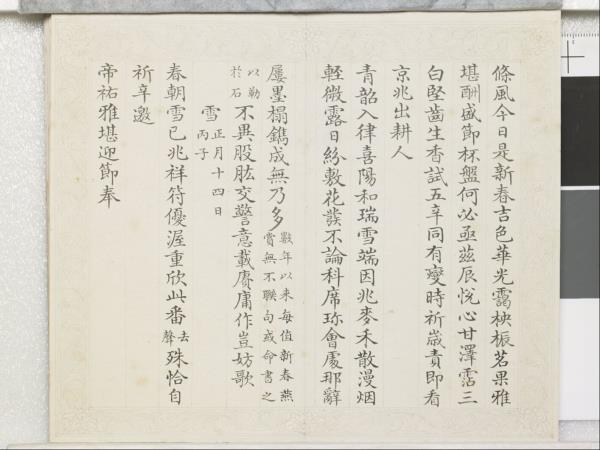 條風今日是新春吉色華光靄柍振茗果雅
堪酬盛節杯盤何必亟茲辰悅心甘澤霑三
白堅齒生香試五辛同有變時祈歲責即看
京兆出耕人
青韶入律喜陽和瑞雪端因兆麥禾散漫烟
輕微露日紛敷花發不論科席珎會處那辭
屢墨榻鐫成無乃多數年以來每值新春燕賞無不聯句或命書之
以勒於石不異股肱交警意載賡庸作豈妨歌
雪正月十四日丙子
春朝雪已兆祥符優渥重欣此番去聲殊恰自
祈辛邀
帝祐雅堪迎節奉